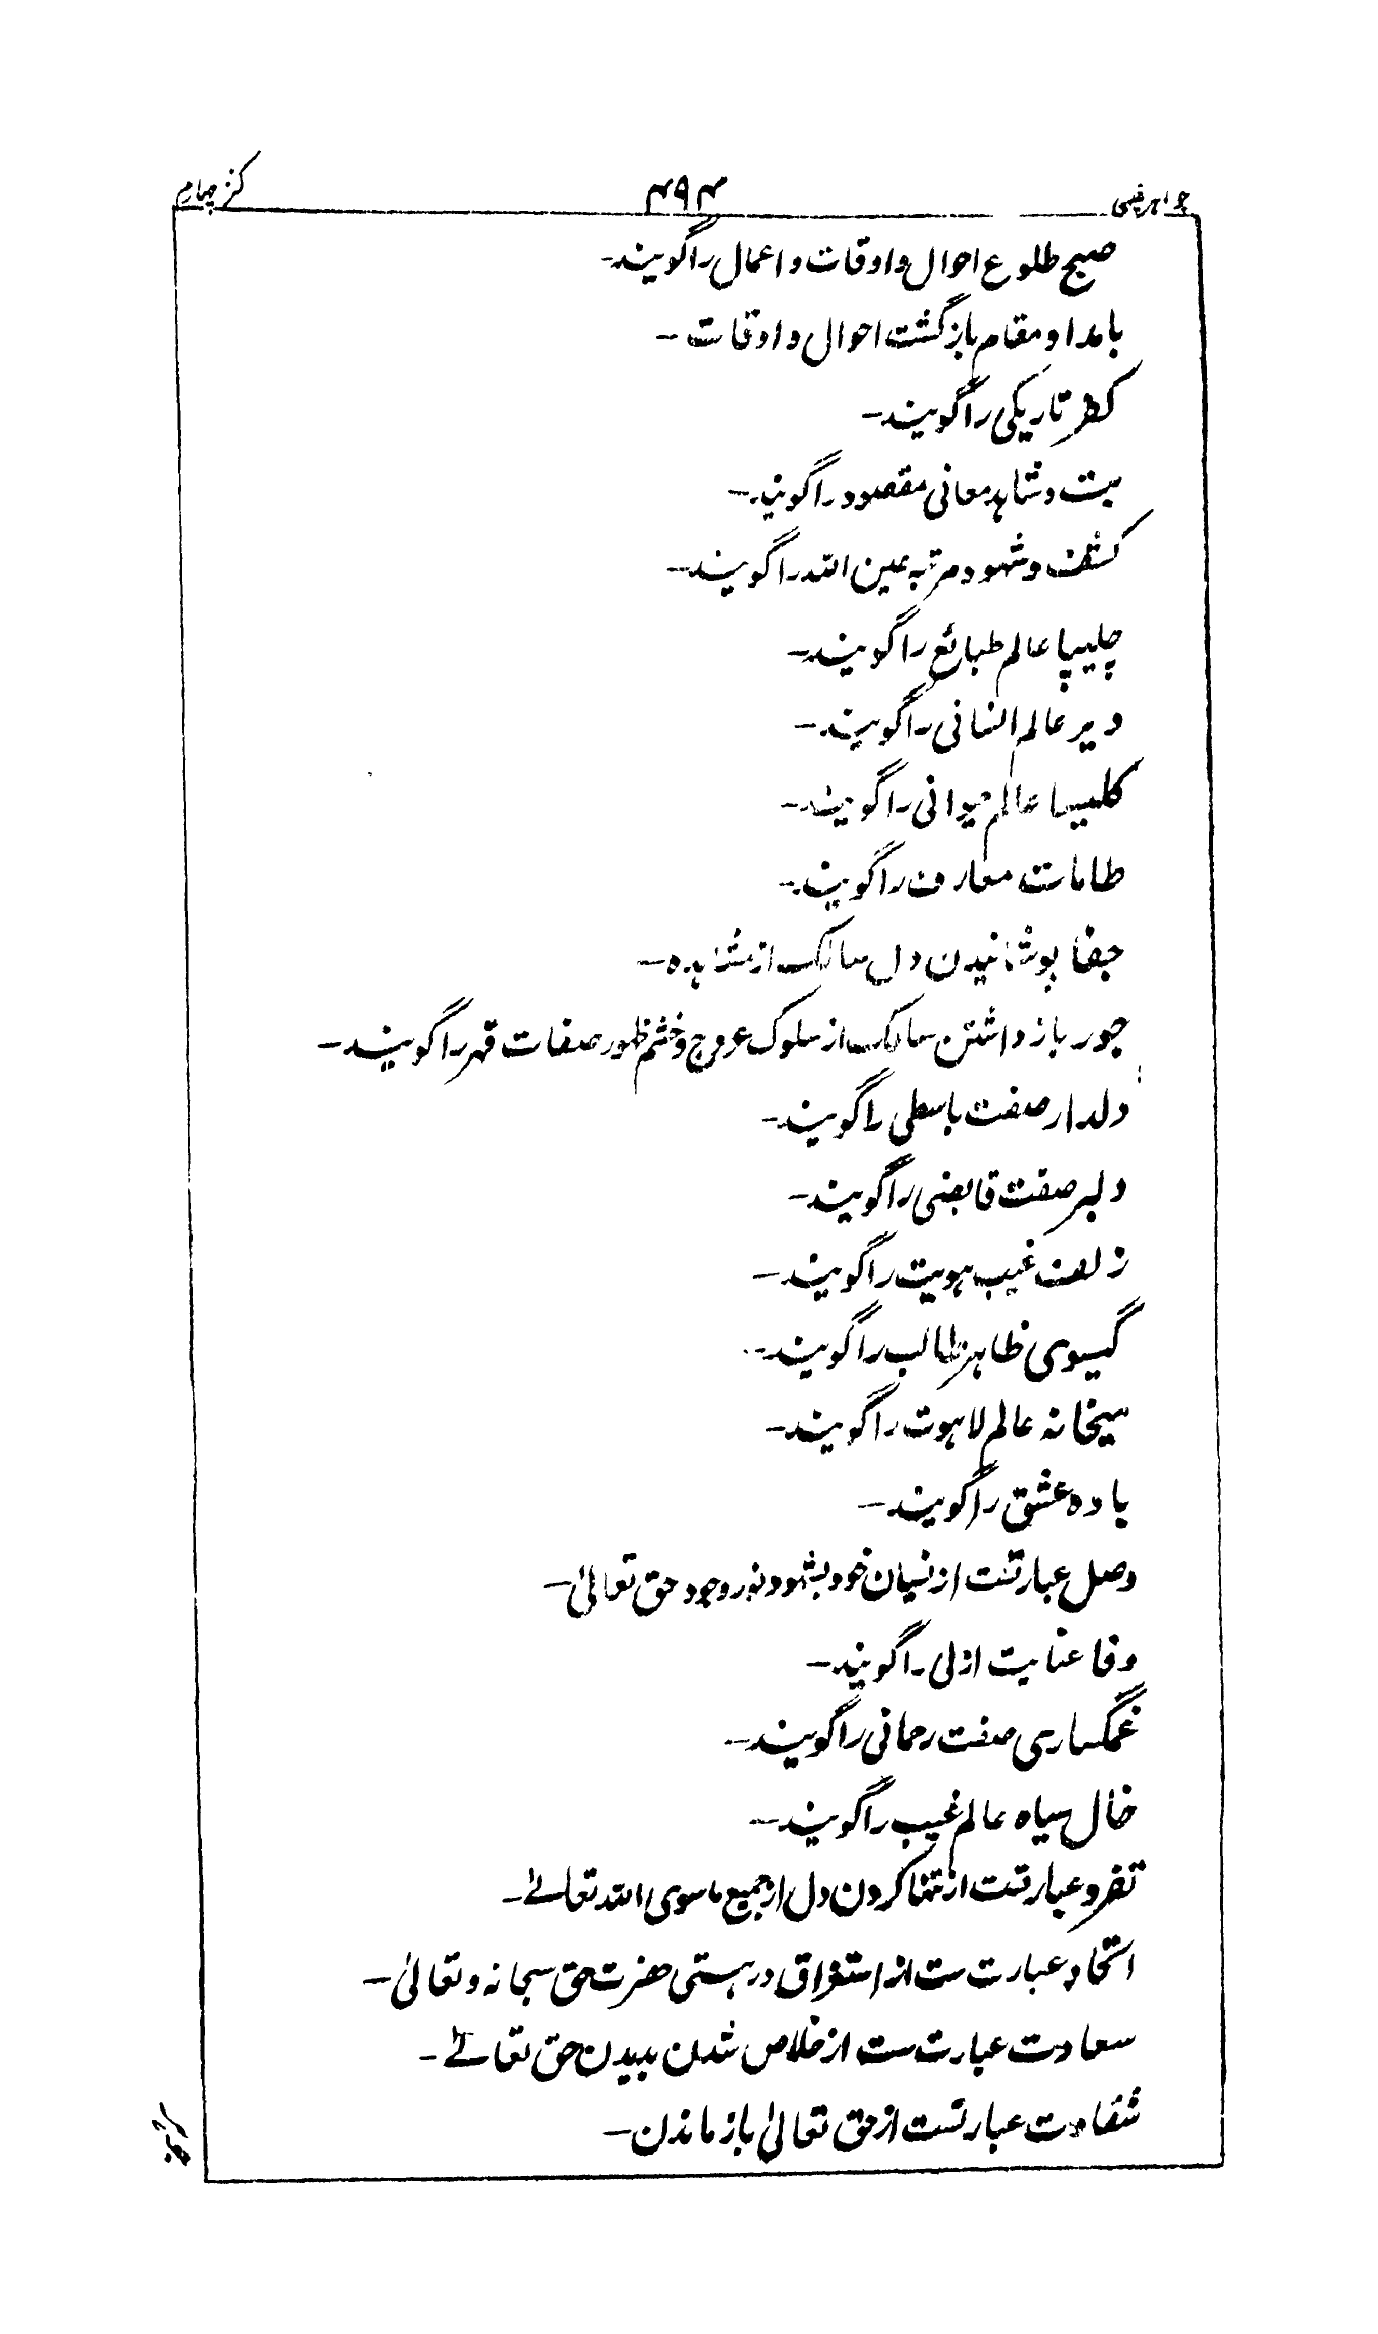 جواہر غیبی
۴۹۴
کنز چہارم
صبح طلوع احوال و اوقات و اعمال را گویند-
بامداد مقام بازگشت احوال و اوقات -
کفر تاریکی را گویند-
بت و شاہد معانی مقصود را گویند-
کشف و شہود مرتبہ عین اللہ را گویند-
چلیپا عالم طبائع را گویند-
دیر عالم انسانی را گویند-
کلیسا عالم حیوانی را گویند-
طامات معارف را گویند-
جفا پوشانیدن دل سالک از مشاہدہ-
جور باز داشتن سالک از سلوک عروج و خشم ظہور صفات قہر را گویند-
دلدار صفت باسطی را گویند-
دلبر صفت قابضی را گویند-
زلف غیب ہویت را گویند-
گیسوی ظاہر طالب را گویند-
میخانہ عالم لاہوت را گویند-
بادہ عشق را گویند-
وصل عبارتست از نسیان خود بشہود نور وجود حق تعالیٰ-
وفا عنایت ازلی را گویند-
غمگساری صفت رحمانی را گویند-
خال سیاہ عالم غیب را گویند-
تفرد عبارتست از تنہا کردن دل از جمیع ماسوی اللہ تعالےٰ-
اتحاد عبارت ست از استغراق در ہستی حضرت حق سبحانہ و تعالیٰ-
سعادت عبارت ست از خلاص شدن بدیدن حق تعالےٰ-
شقاوت عبارتست از حق تعالیٰ باز ماندن-